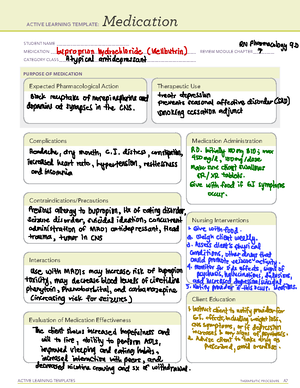 ACTIVE LEARNING TEMPLATE: Medication
STUDENT NAME
RN Pharmacology 9.0
MEDICATION bupropion hydrochloride (Wellbutrin)
REVIEW MODULE CHAPTER 7
CATEGORY CLASS Atypical antidepressant
PURPOSE OF MEDICATION
Expected Pharmacological Action
Block reuptake of norepinephrine and
dopamine at synapses in the CNS.
Therapeutic Use
treats depression
prevents seasonal affective disorder (SAD)
smoking cessation adjunct
Complications
Headache, dry mouth, G.I. distress, constipation,
increased heart rate, hypertension, restlessness
and insomnia
Medication Administration
P.O. Initially 100 mg BID; max
450 mg/d, 150 mg/dose
Make sure client swallows
ER/XR tablets.
Give with food if GI symptoms
occur.
Contraindications/Precautions
Previous allergy to bupropion, Hx of eating disorder,
seizure disorder, suicidal ideation, concurrent
administration of MAOI antidepressant, head
trauma, tumor in CNS
Nursing Interventions
1. Give with food.
2. Weigh client weekly.
3. Assess client's physical
conditions, other drugs that
could promote seizure activity.
4. Monitor for side effects, signs of
psychosis, hallucinations, delusions,
and increased depression/suicidal
5. Notify provider if this occur.
Interactions
Use with MAOIs may increase risk of bupropion
toxicity, may decrease blood levels of
phenytoin, phenobarbital, and carbamazepine
(increasing risk for seizures)
Client Education
1. Instruct client to notify provider for
G.I. effects, including weight loss,
CNS symptoms, or if depression
increases or any signs of psychosis.
2. Advise client to take drug as
prescribed, avoid alcohol.
Evaluation of Medication Effectiveness
The client shows increased hopefulness and
will to live, ability to perform ADLs,
improved sleeping and eating habits,
increased interaction with peers, and
decreased nicotine craving and S/S of withdrawal.
ACTIVE LEARNING TEMPLATES
THERAPEUTIC PROCEDURE A7